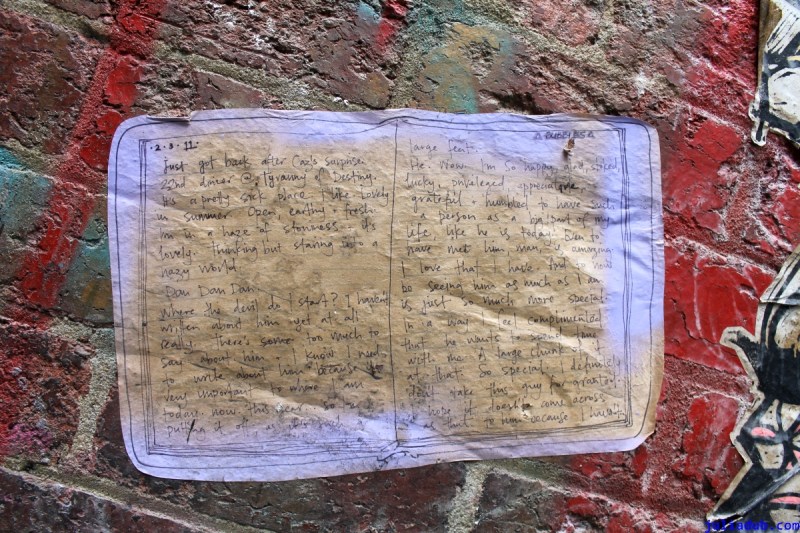 .2.3.11.
Just got back after Carls surprise
22nd dinner @ Tyranny of Destiny.
It's a pretty sick place. I like. Lovely
in summer. Open, earthy + fresh.
Im in a haze of stoness. It's
lovely. Thinking but staring into a
hazy world.
Dan Dan Dan.
Where the devil do I start? I havent
written about him yet at all
really. There's some too much to
say about him + I know I need
to write about him because
very important to where I am
today. Now. This year.
putting it off, as
large tent.
He. Wow. I'm so happy,
lucky, priveleged, appreciative
grateful + humbled to have such
a person as a part of my
life, like he is today. Even to
have met him, man, is amazing.
I love that I have
be seeing him as much as I am
is just so much more special.
In a way I feel complimented
that he wants to spend time
with me. A large chunk of
at that. So special. I definitely
dont take this guy for granted.
hope it doesnt come across
as that to him because I
juliadum.com